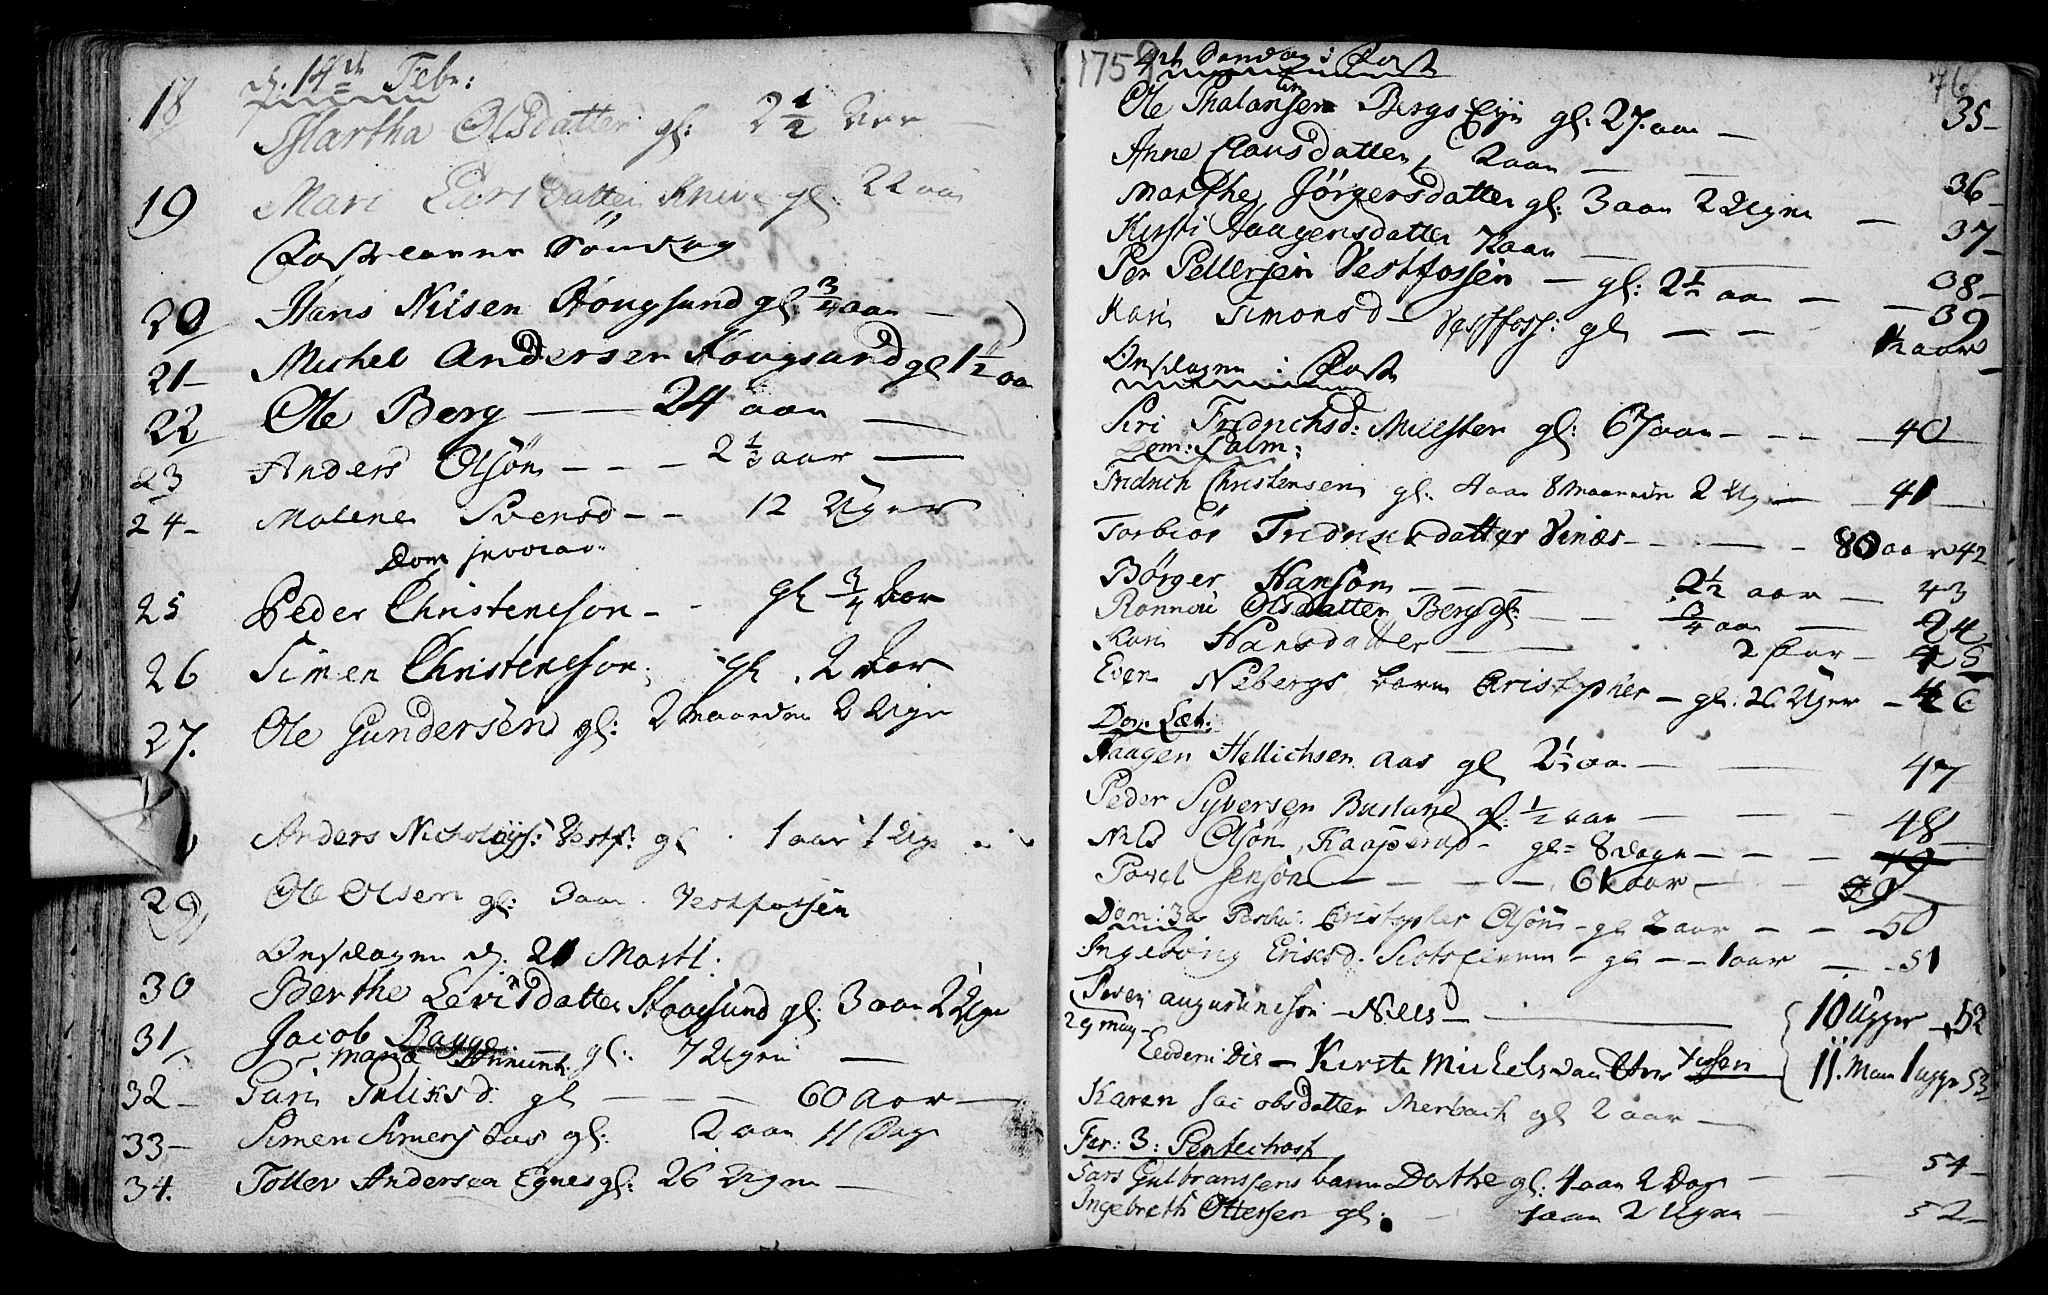 d. 14de Febr:
18 Martha Olsdatter gl: 2 1/2 
19 Mari Lars datter gl: 22 aar
Fastelavns Søndag
20 Hans Nilsen Hougsund gl: 3/4 aar
21 Michel Andersen Hougsund gl 1 1/2 aar
22 Ole Berg 24 aar
23 Anders Olsøn 2 1/2 aar
24 Malene Svensd 12 Uger
Dom invocav.
25 Peder Christenson gl 3/4 aar
26 Simen Christenson gl. 2 aar
27. Ole Gundersen gl: 2 maander 2 Uger
Anders Nicholays: Vestf: gl 1 aar 1 Uge
29 Ole Olsen gl: 3 aar Vestfossen
Onsdagen d. 21 Martl.
30 Berthe Levisdatter Hougsund gl: 3 aar 2 Uger
31 Jacob Bagge gl: 7 Uger
32 Guri gl 60 Aar
33 Simen Simens Aas gl: 2 aar 11 Dage
34. Toller Andersen Egnes gl: 26 Uger
1759 4de Søndag i Fast 76
Ole Bergs Eye gl: 27. aar 35
Anne Clausdatter 2 aar
Marthe Jörgersdatter gl: 3 aar 2 Uger 36
Kirsti Haagensdatter aar 37
Per Pettersen Vestfossen gl: 2 1/2 aar 38
Kari Simonsd Vestfoss: gl 39
1/2 aar
Onsdagen i Faste
Siri Fridrichsd: Millsten gl: 67 aar 40
Dom: Palm:
Fridrich Christensen gl. 4 aar 8 maaneder 2 Uger 41
Torbiør Fridrichsdatter Vinæs 80 aar 42
Børger Hansøn 2 1/2 aar 43
Ronnou Olsdatter Berg gl: 3/4 aar 24
Kari Hansdatter 2 aar 45
Even Nebergs barn Christopher gl: 26 Uger 46
Dom. Læt:
Haagen Hellichsen Aas gl 2 1/2 aar 47
Peder Syversen Busland gl: 1/2 aar 48
Nils Olsøn Kaapperud gl= 8 dage 49
Povel Jensøn 61 aar
Dom: 3a Pascha: Christopher Olsøn gl 2 aar 50
Ingeborg Eriksd. gl 1 aar 51
Sven Augustinsøn Nils 10 Uger 52
29 may Eodem Die Kirste Michelsdatter 11. Maan 1 uge 53
Karen Jacobsdatter Merbach gl 2 aar
Fer: 3: Pentechost
Lars Gulbranssens barn Dorthe gl: 4 aar 2 Dage 54
Ingebreth Ottersen gl: 1 aar 2 Uger 52